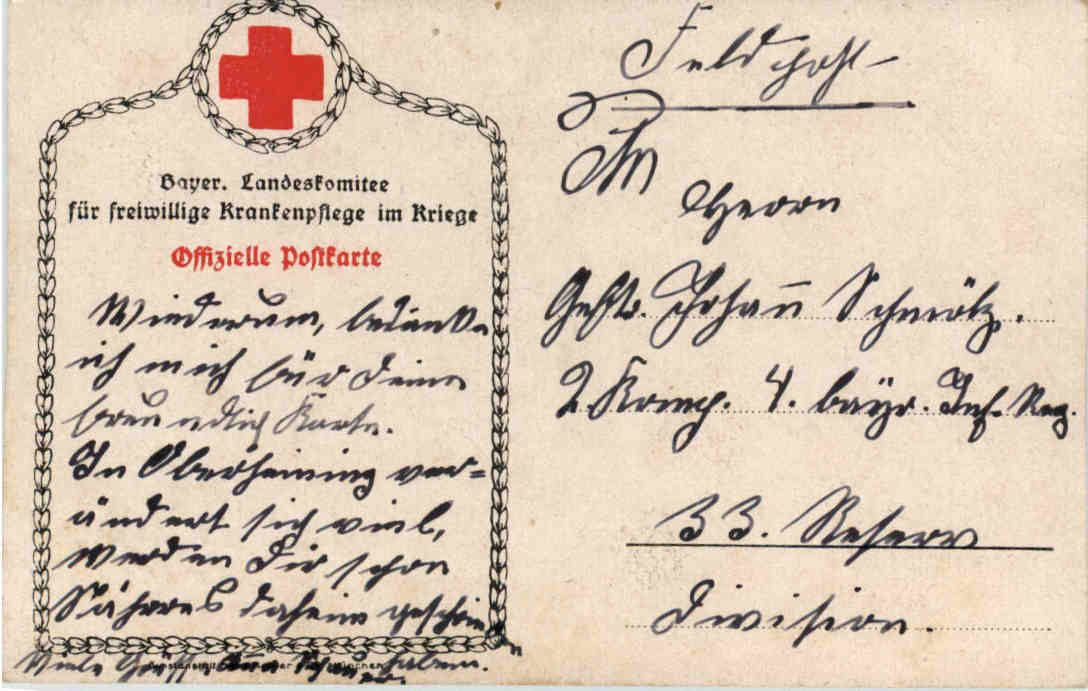 Bayer. Landeskomitee
für freiwillige Krankenpflege im Kriege
Offizielle Postkarte
Wiederum, bedanke
ich mich für Deine
freundlich Karte.
In Oberhaining ver=
ändert sich viel,
werden Dir schon
Nähres daheim geschrie
Viele Grüsse
Feldpost
An
Herrn
Gefr. Johann Schmölz.
2 Komp. 4. bayr. Inf. Reg.
33. Reserv
Division.